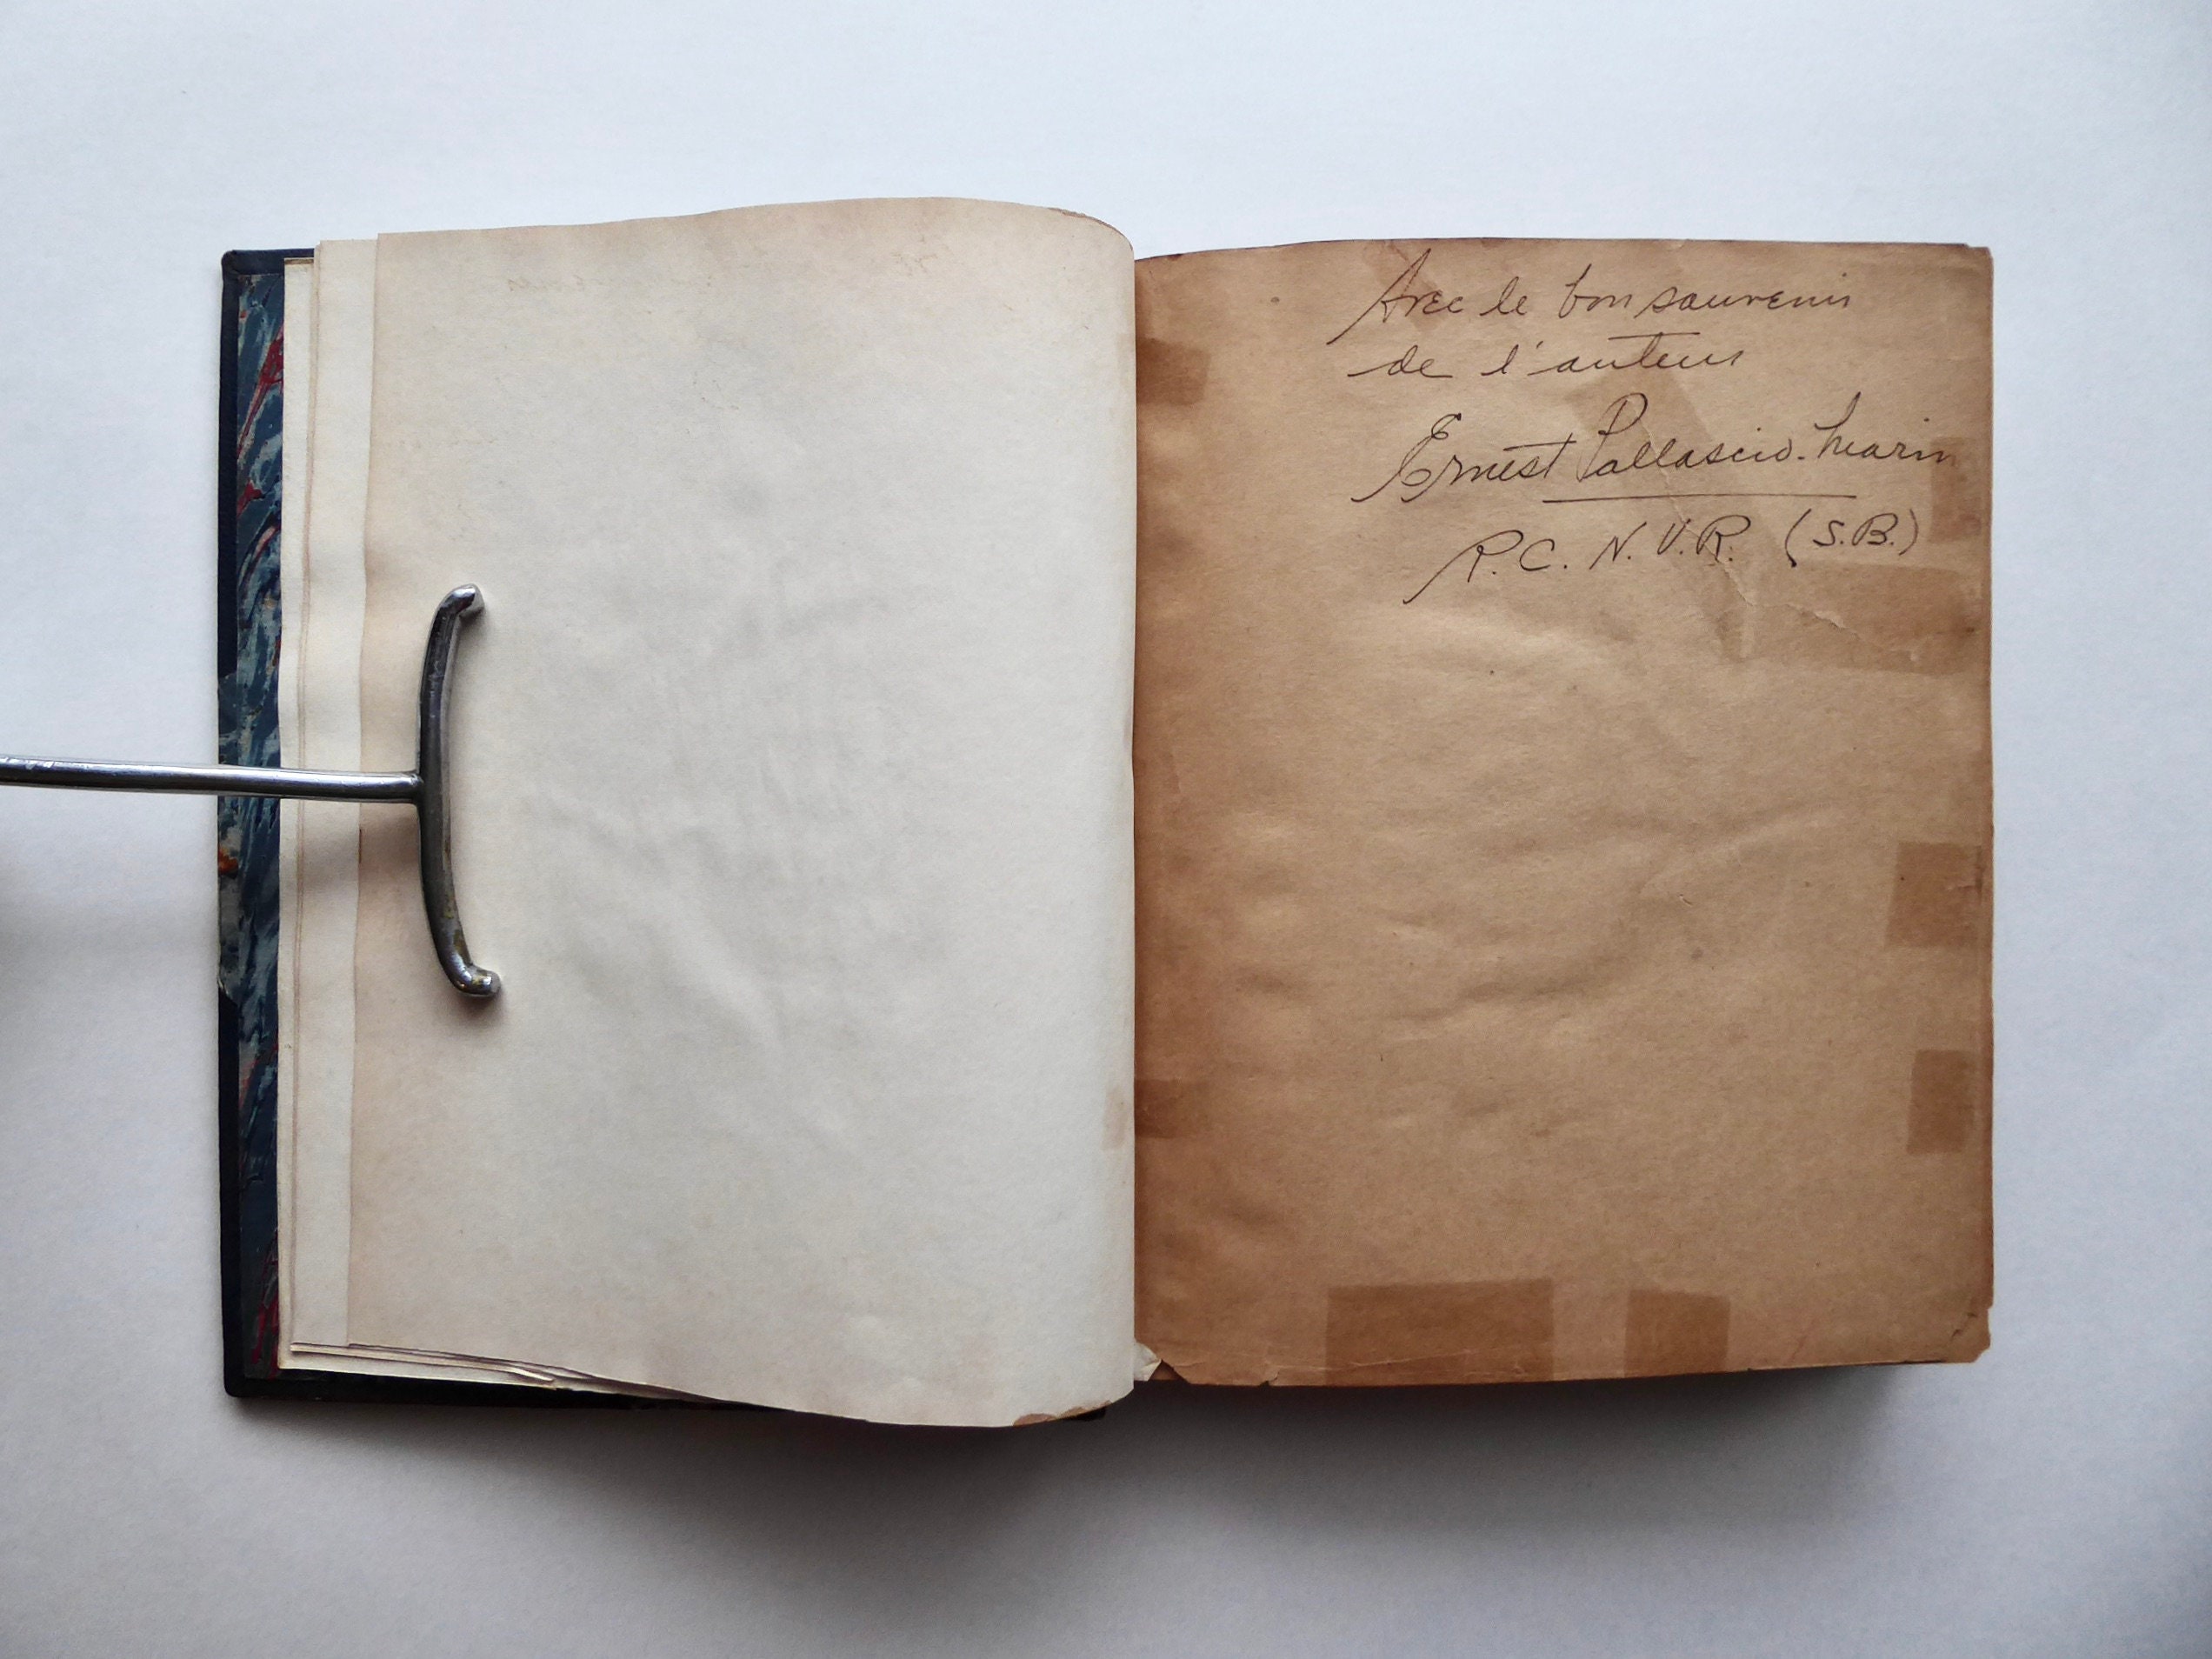 Avec le bon souvenir
de l'auteur
Ernest Pallascio-Morin
R.C.N.V.R. (S.B.)